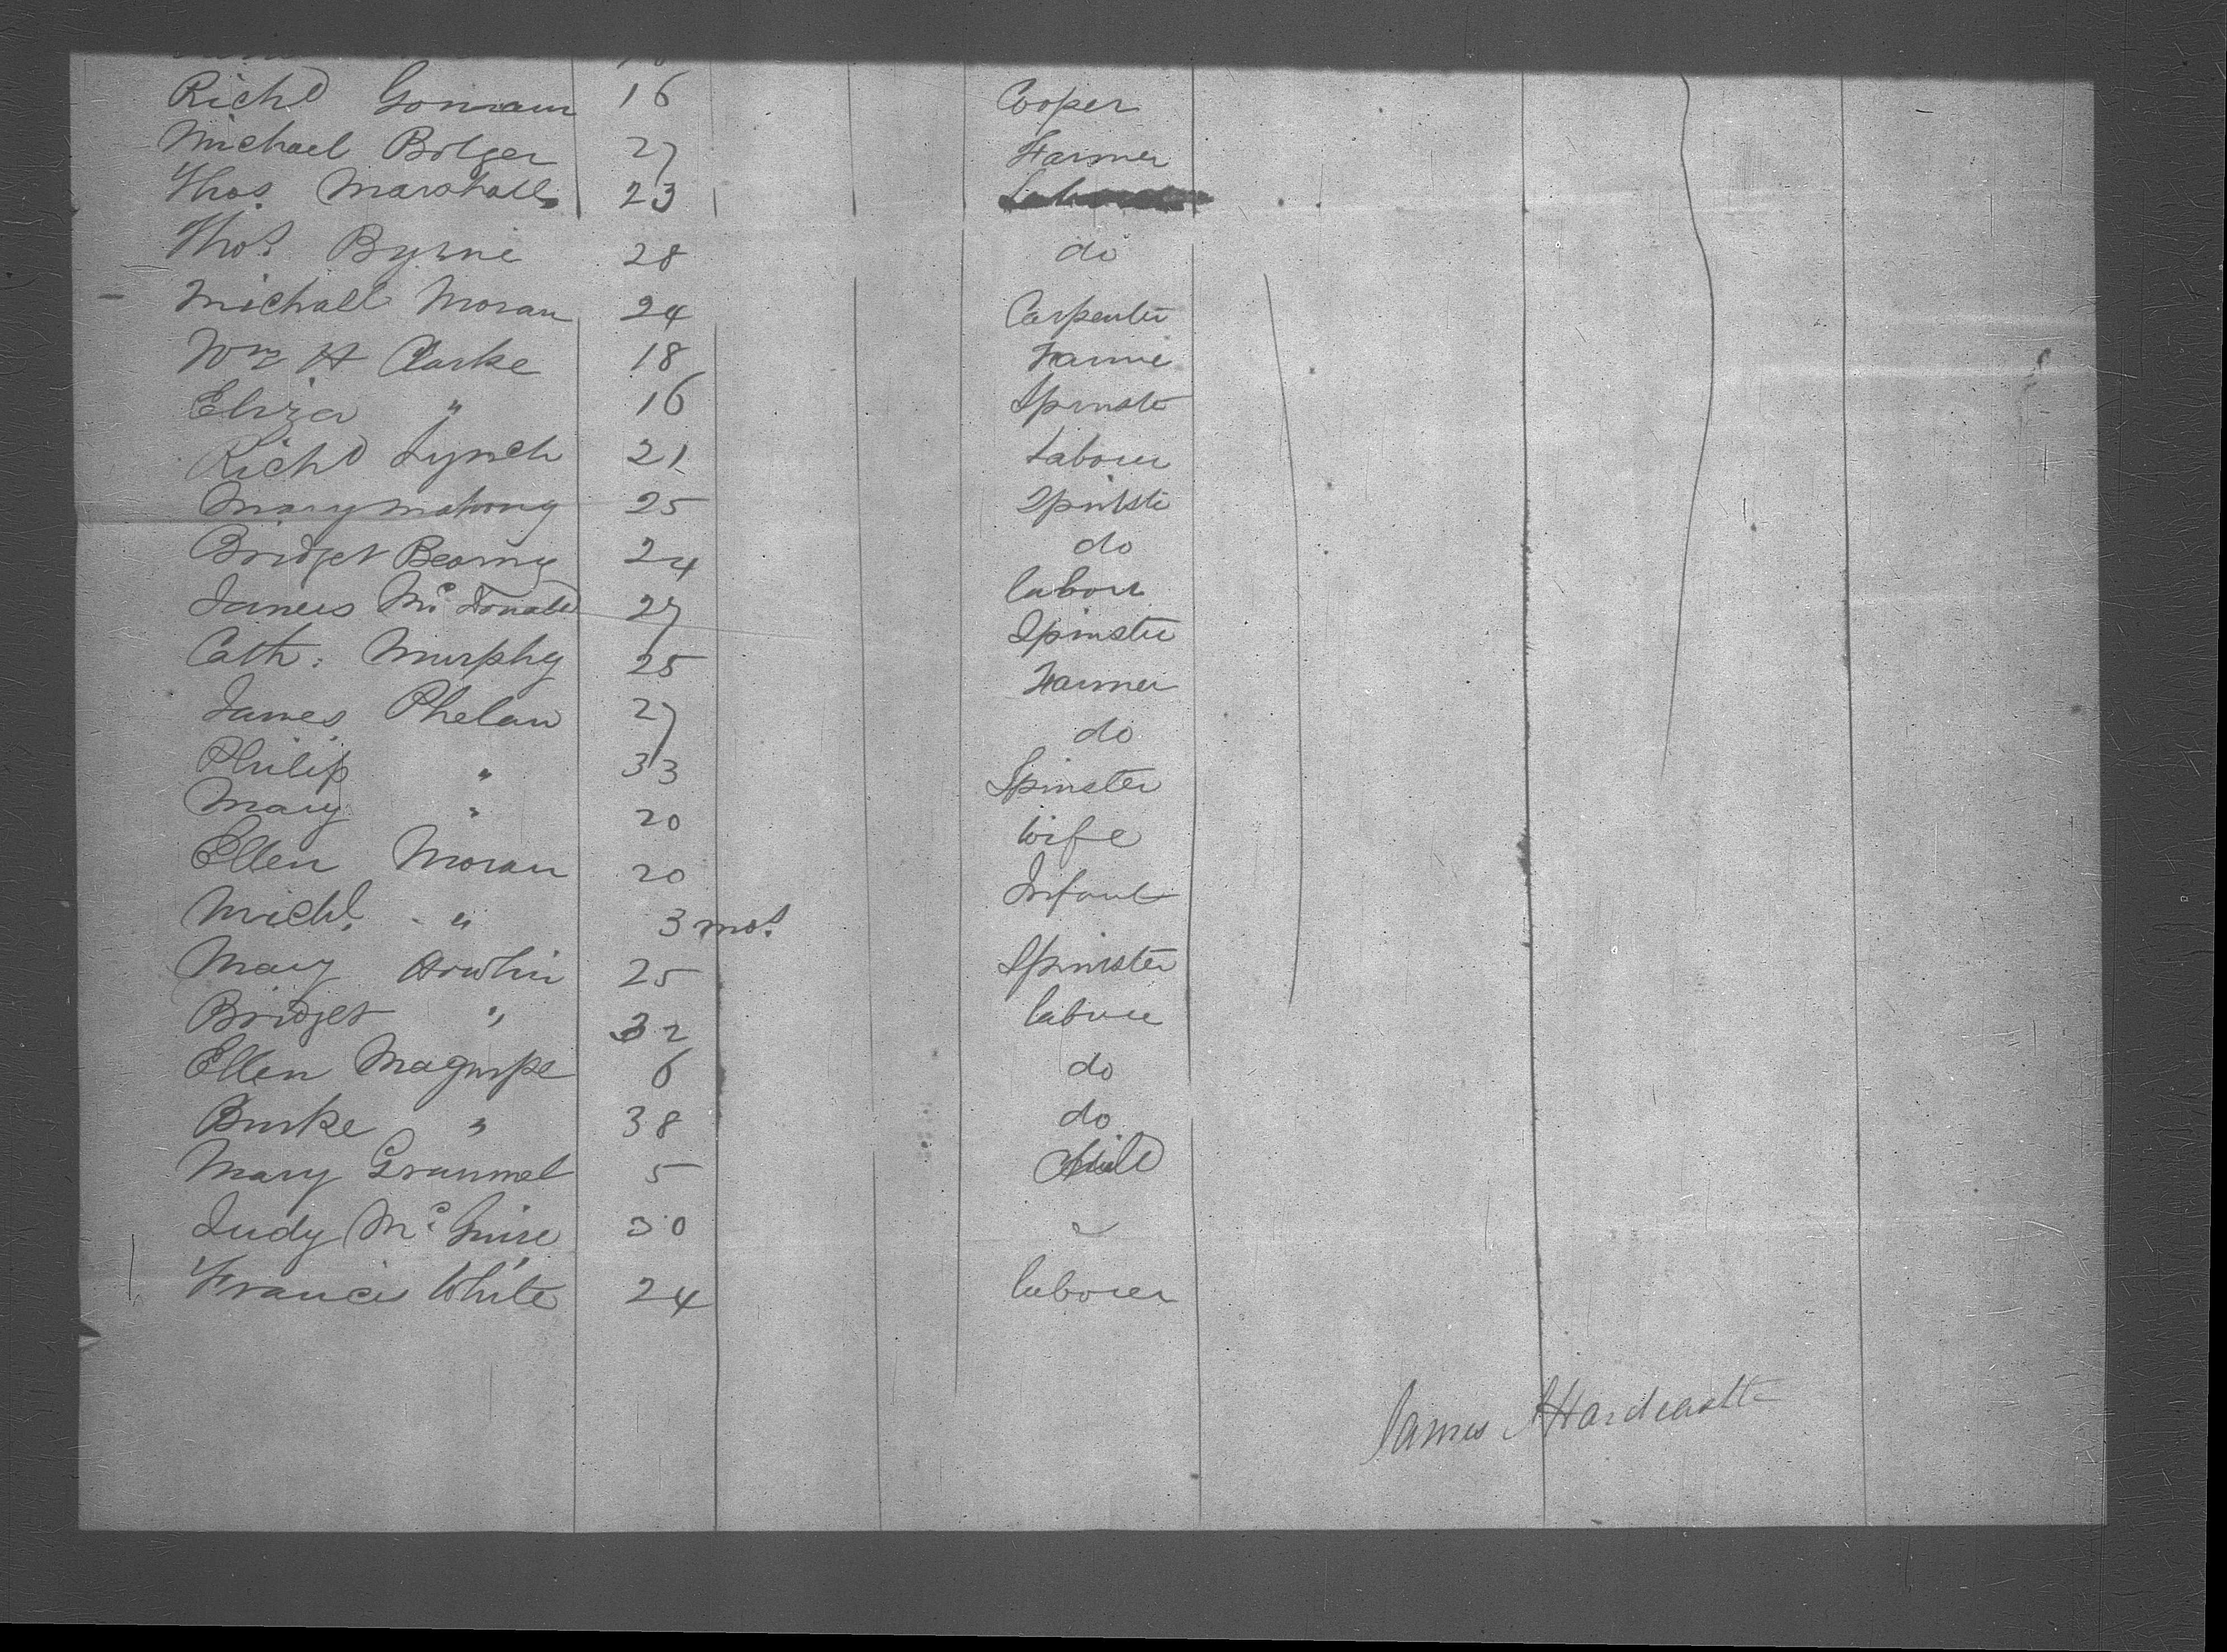 Richd Gorman 16 Cooper
Michael Bolger 27 Farmer
Thos Marshall 23
Thos Byrne 28 do
Michall Moran 24 Carpenter
Wm H Clarke 18 Farme
Eliza " 16 Spinste
Richd Lynch 21 Labourer
Mary Mahony 25 Spinste
Bridget 24 do
James McDonald 27 labour
Cath: Murphy 25 Spinster
James Phelan 27 Farmer
Philip " 33 do
Mary " 20 Spinster
Ellen Moran 20 wife
Michl. " 3 mos. Infant
Mary Howlin 25 Spinster
Bridget " 32 labour
Ellen 6 do
Burke " 38 do
Mary Grummel 5 Child
Judy McGuire 30 "
Francis White 24 labourer
James Hardcastle